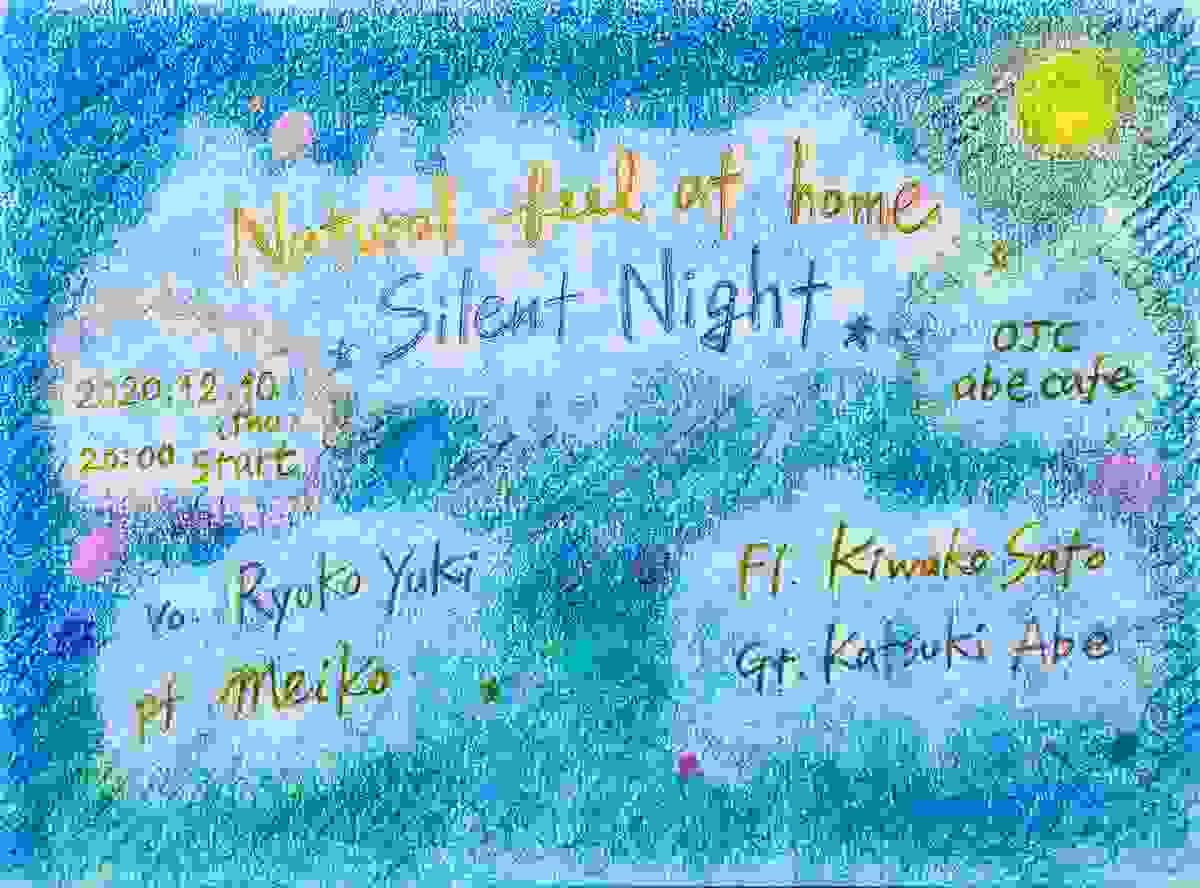 Natural feel at home
* Silent Night *
2020.12.10.
Thu.
20:00 start
OJC
abe cafe
Vo. Ryoko Yuki
pf Meiko
Fl. Kiwako Sato
Gr. Katsuki Abe